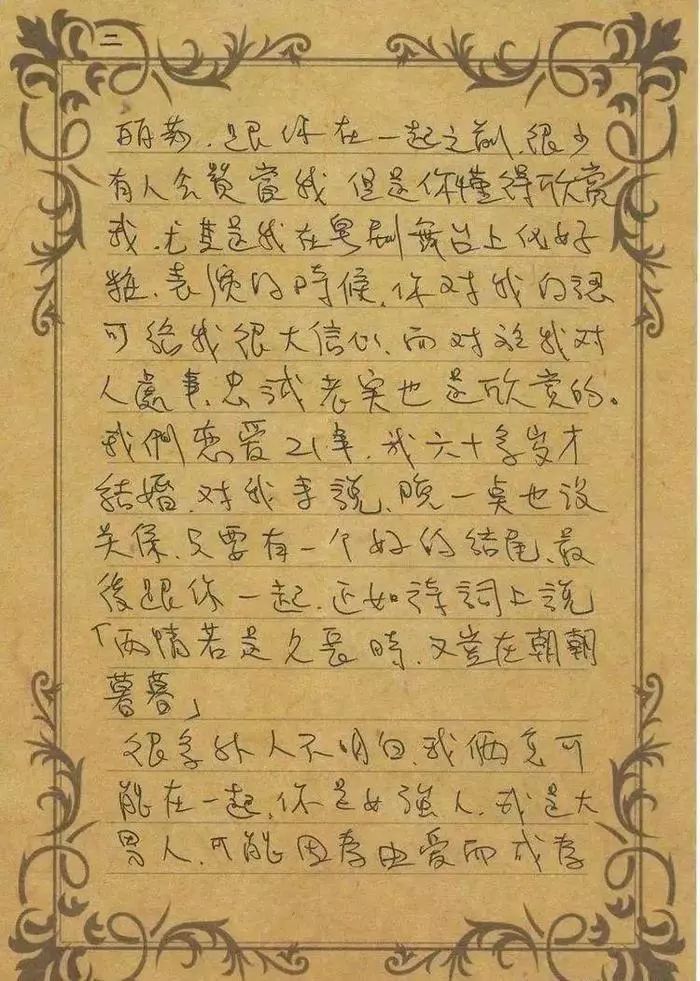 二
丽莎，跟你在一起之前，很少
有人会赞賞我，但是你懂得欣赏
我，尤其是我在粤剧舞台上化好
粧、表演的時候，你对我的認
可給我很大信心，而对於我对
人處事、忠誠老実也是欣赏的。
我們恋爱21年，我六十多岁才
結婚，对我来說，晚一点也没
关係，只要有一个好的結尾，最
後跟你一起，正如诗詞上說
「两情若是久長時，又豈在朝朝
暮暮」
很多外人不明白，我俩竟可
能在一起，你是女強人，我是大
男人，可能因為由爱而成為